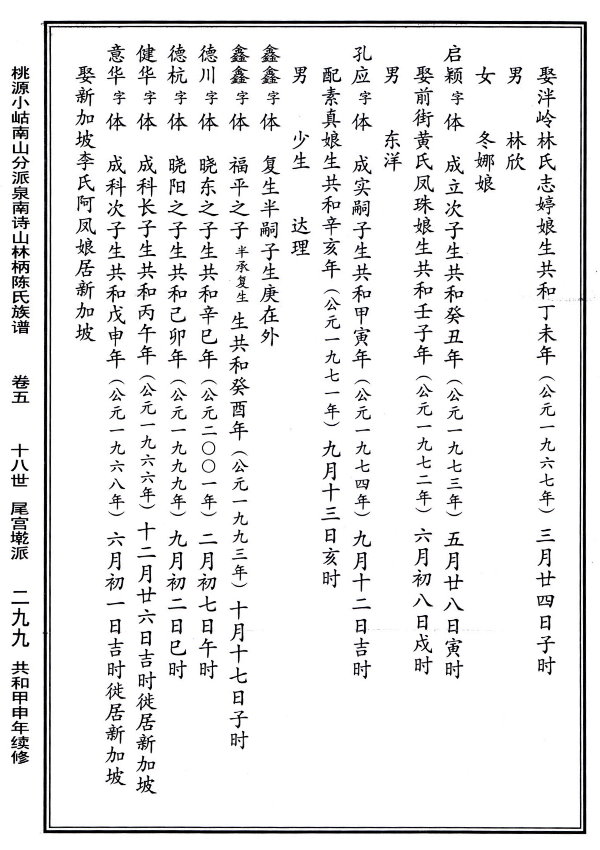 娶泮岭林氏志婷娘生共和丁未年（公元一九六七年）三月廿四日子时
男　林欣
女　冬娜娘
启颖字　体　成立次子生共和癸丑年（公元一九七三年）五月廿八日寅时
娶前街黄氏凤珠娘生共和壬子年（公元一九七二年）六月初八日戍时
男　东洋
孔应字　体　成实嗣子生共和甲寅年（公元一九七四年）九月十二日吉时
配素真娘生共和辛亥年（公元一九七一年）九月十三日亥时
男　少生　达理
鑫鑫字　体　复生半嗣子生庚在外
鑫鑫字　体　福平之子半承复生生共和癸酉年（公元一九九三年）十月十七日子时
德川字　体　晓东之子生共和辛巳年（公元二〇〇一年）二月初七日午时
德杭字　体　晓阳之子生共和己卯年（公元一九九九年）九月初二日巳时
健华字　体　成科长子生共和丙午年（公元一九六六年）十二月廿六日吉时徙居新加坡
意华字　体　成科次子生共和戊申年（公元一九六八年）六月初一日吉时徙居新加坡
娶新加坡李氏阿凤娘居新加坡
桃源小岵南山分派泉南诗山林柄陈氏族谱　卷五　十八世　尾宫墘派　二九九　共和甲申年续修